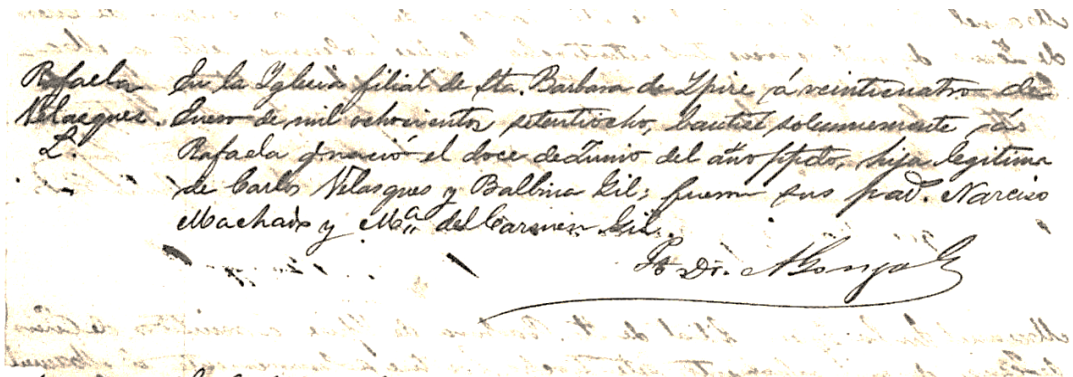 Rafaela
Velasques.
L.
En la Yglecia filial de Sta. Barbara de Ypire á veinticuatro de
Enero de mil ochocientos setentiocho, bauticé solemnemente á
Rafaela q nació el doce de Junio del año ppdo, hija legitima
de Carlos Velasques y Balbina Gil; fueron sus pad. Narciso
Machado y Ma. del Carmen Gil.
Pb Dr.